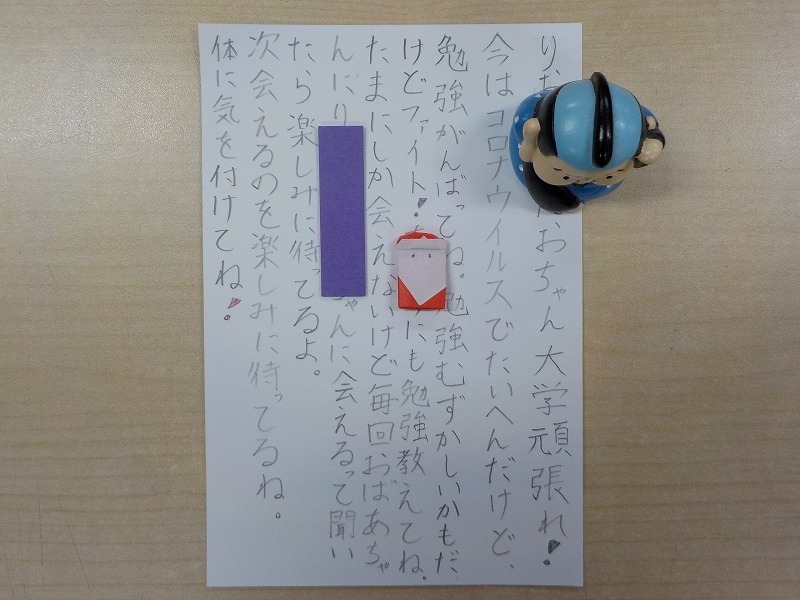 りおちゃん大学頑張れ!
今はコロナウイルスでたいへんだけど、
勉強がんばってね。勉強むずかしいかもだ
けどファイト! にも勉強教えてね。
たまにしか会えないけど毎回おばあちゃ
んに ちゃんに会えるって聞い
たら楽しみに待ってるよ。
次会えるのを楽しみに待ってるね。
体に気を付けてね!